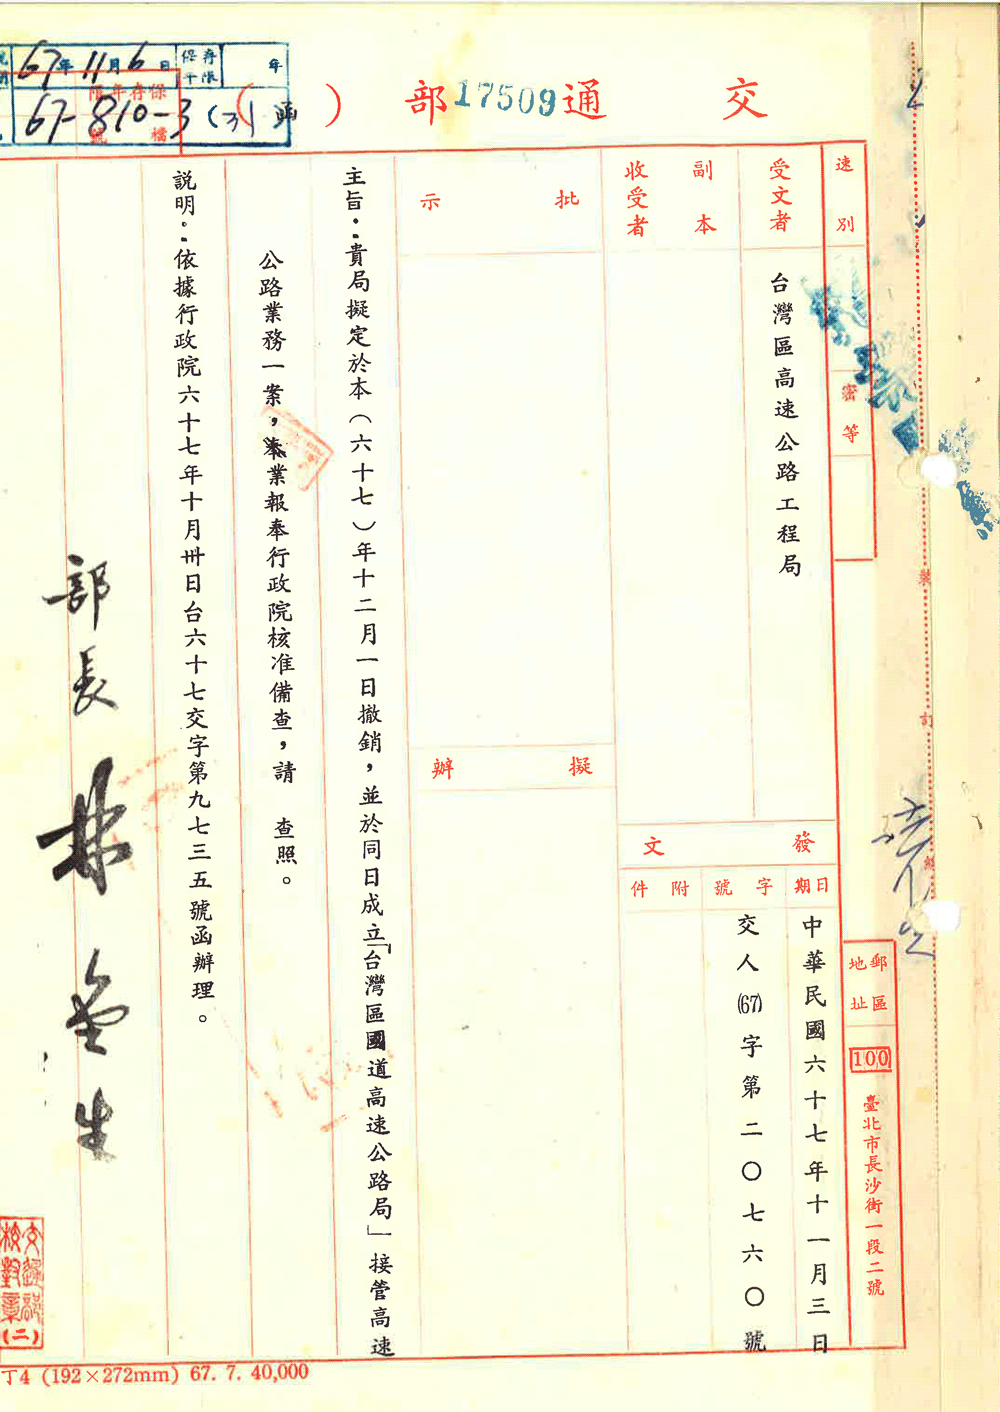 交通部(函)
17509
67年11月6日
保存年限 年
67-810-3(3)
保存年限
檔號
速別
密等
受文者
台灣區高速公路工程局
副本
收受者
批示
擬辦
發文
日期
中華民國六十七年十一月三日
字號
交人(67)字第二〇七六〇號
附件
郵區地址
100
臺北市長沙街一段二號
裝
訂
線
主旨：貴局擬定於本(六十七)年十二月一日撤銷，並於同日成立「台灣區國道高速公路局」接管高速
公路業務一案，業報奉行政院核准備查，請 查照。
說明：依據行政院六十七年十月卅日台六十七交字第九七三五號函辦理。
部長 林金生
交通部
校對章
(二)
丁4 (192×272mm) 67. 7. 40,000